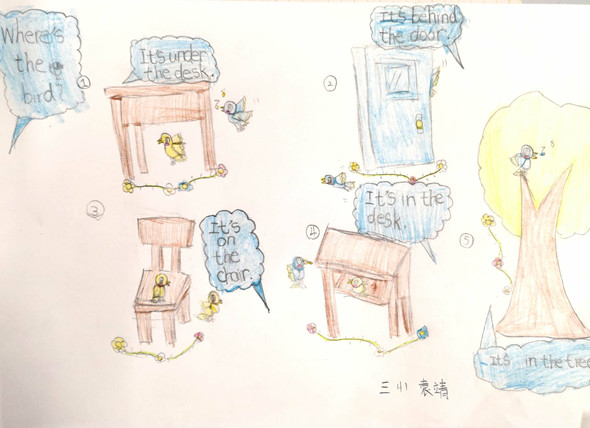 Where's
the
bird?
①
It's under
the desk.
②
It's behind
the door.
③
It's
on
the
chair.
④
It's in the
desk.
⑤
It's in the tree
三 小 袁靖